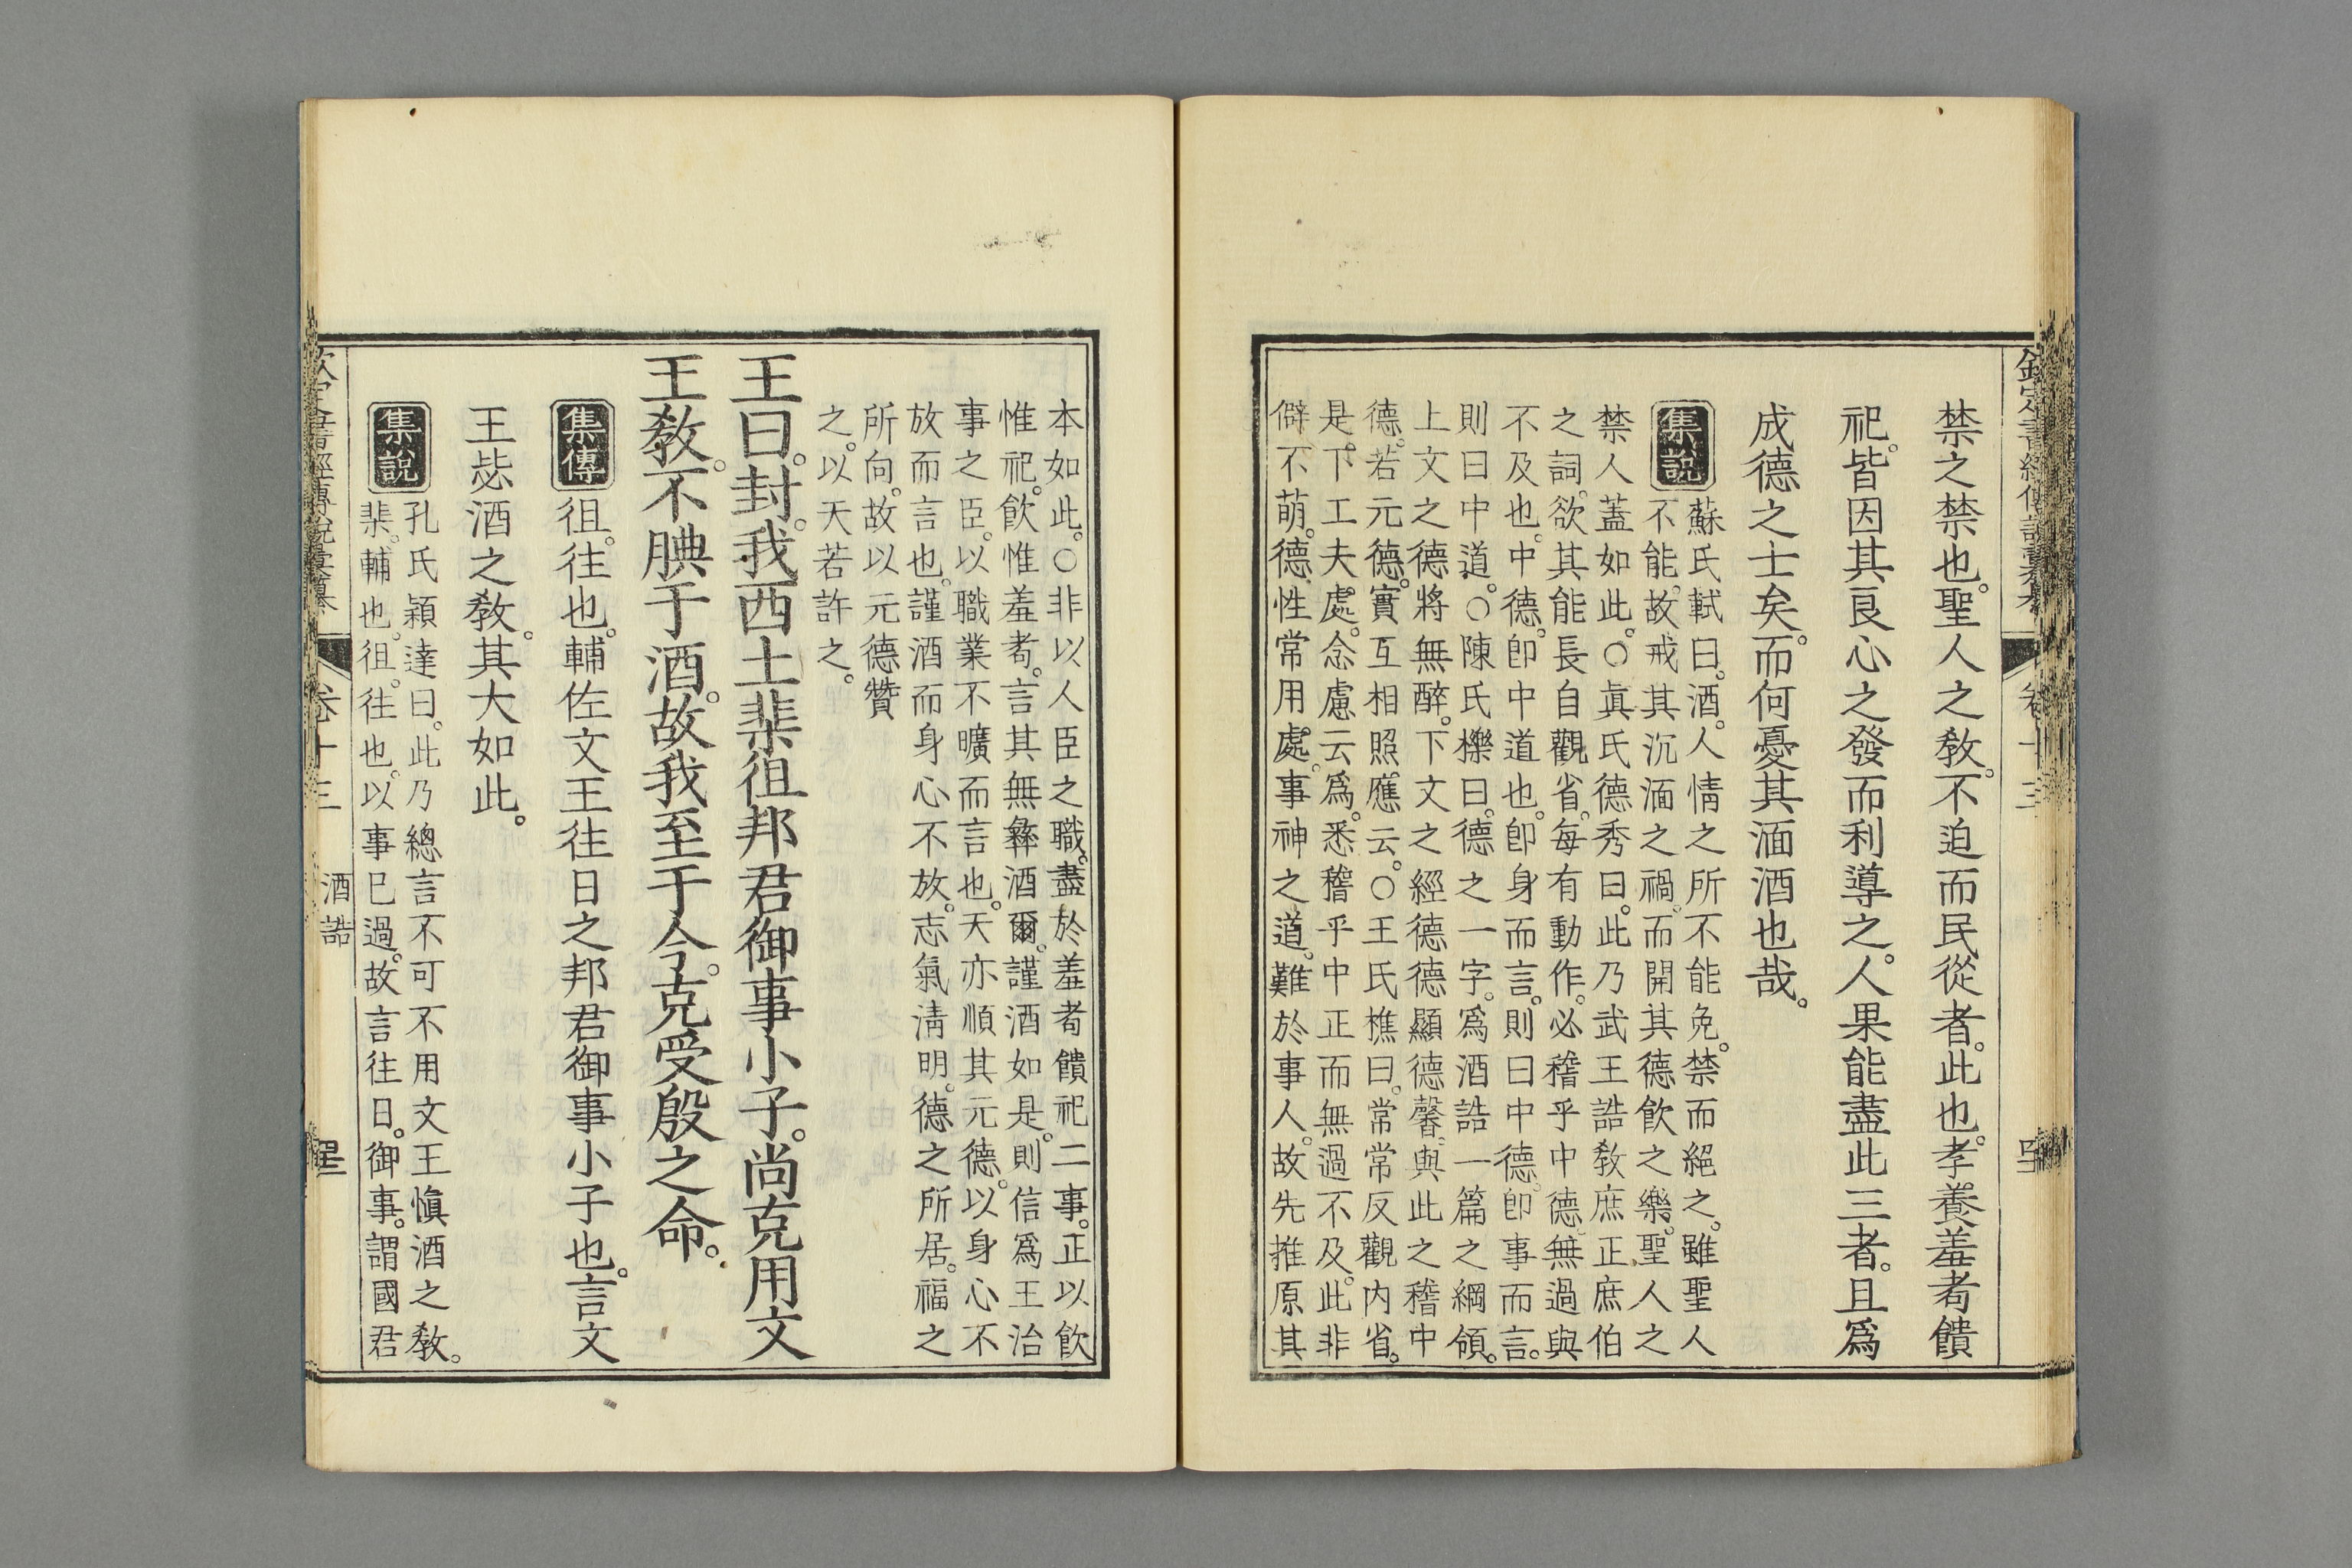 禁之禁也。聖人之敎。不迫而民從者。此也。孝養羞耇饋
祀。皆因其良心之發而利導之。人果能盡此三者。且爲
成德之士矣。而何憂其湎酒也哉。
集說
蘇氏軾曰。酒。人情之所不能免。禁而絕之。雖聖人
不能。故戒其沉湎之禍。而開其德飮之樂。聖人之
禁人蓋如此。○眞氏德秀曰。此乃武王誥敎庶正庶伯
之詞。欲其能長自觀省。每有動作。必稽乎中德。無過與
不及也。中德。卽中道也。卽身而言。則曰中德。卽事而言。
則曰中道。○陳氏櫟曰。德之一字。爲酒誥一篇之綱領。
上文之德將無醉。下文之經德德顯德馨。與此之稽中
德。若元德。實互相照應云。○王氏樵曰。常常反觀內省。
是下工夫處。念慮云爲。悉稽乎中正而無過不及。此非
僻不萌。德性常用處。事神之道。難於事人。故先推原其
本如此。○非以人臣之職。盡於羞耇饋祀二事。正以飮
惟祀。飮惟羞耇。言其無彝酒爾。謹酒如是。則信爲王治
事之臣。以職業不曠而言也。天亦順其元德。以身心不
放而言也。謹酒而身心不放。志氣淸明。德之所居。福之
所向。故以元德贊
之。以天若許之。
王曰。封。我西土棐徂邦君御事小子。尙克用文
王敎。不腆于酒。故我至于今。克受殷之命。
集傳
徂。往也。輔佐文王往日之邦君御事小子也。言文
王毖酒之敎。其大如此。
集說
孔氏穎達曰。此乃總言不可不用文王愼酒之敎。
棐。輔也。徂。往也。以事已過。故言往日。御事。謂國君
卷十三
酒誥